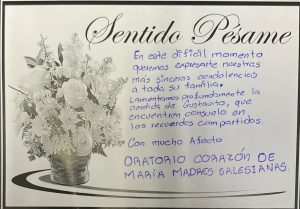 Sentido Pésame
En este difícil momento
queremos expresarte nuestras
más sinceras condolencias
a toda su familia.
Lamentamos profundamente la
perdida de Gustavito, que
encuentren consuelo en
los recuerdos compartidos.
Con mucho Afecto
ORATORIO CORAZÓN DE
MARÍA MADRES SALESIANAS.